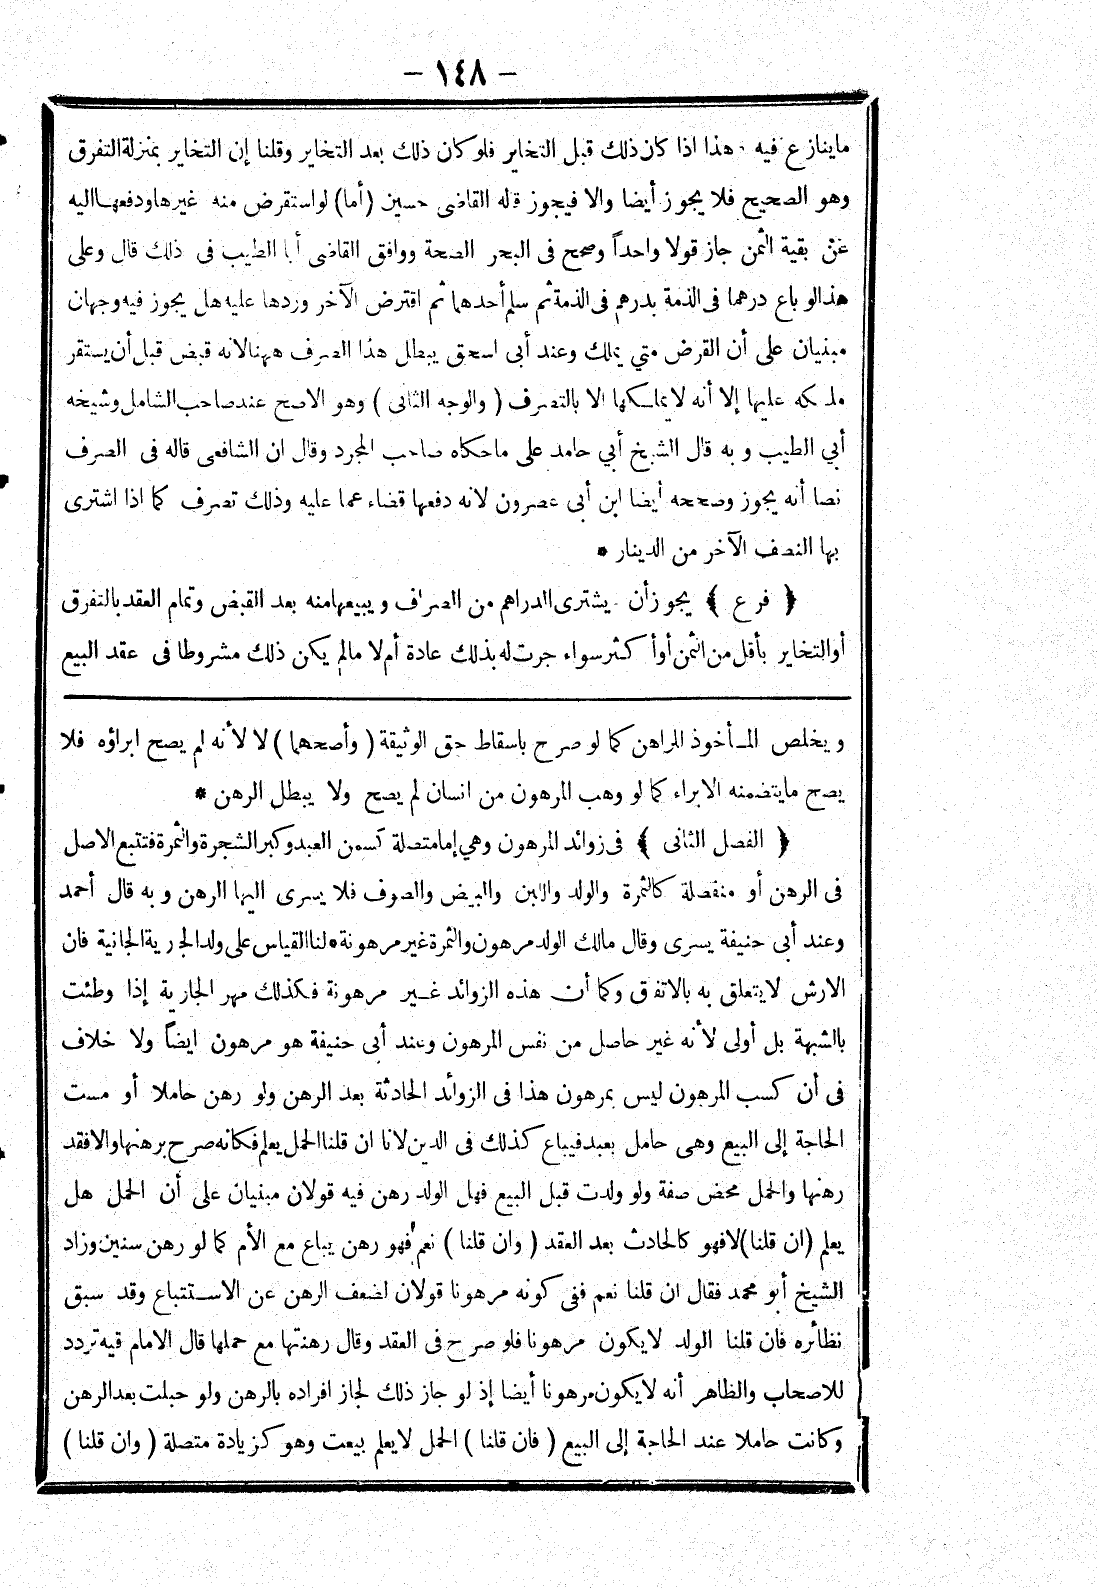 - ١٤٨ -
ماينازع فيه . هذا اذا كان ذلك قبل التخاير فلو كان ذلك بعد التخاير وقلنا إن التخاير بمنزلة التفرق
وهو الصحيح فلا يجوز أيضا والا فيجوز قاله القاضى حسين (أما) لو استقرض منه غيرها ودفعها اليه
عن بقية الثمن جاز قولا واحداً وصحح فى البحر الصحة ووافق القاضى أبا الطيب فى ذلك قال وعلى
هذا لو باع درهما فى الذمة بدرهم فى الذمة ثم سلم أحدهما ثم اقترض الآخر وردها عليه هل يجوز فيه وجهان
مبنيان على أن القرض متي يملك وعند أبى اسحق يبطل هذا الصرف ههنا لانه قبض قبل أن يستقر
ملـكه عليها إلا أنه لا يملـكها الا بالتصرف ( والوجه الثانى ) وهو الاصح عند صاحب الشامل وشيخه
أبي الطيب وبه قال الشيخ أبي حامد على ماحكاه صاحب المجرد وقال ان الشافعى قاله فى الصرف
نصا أنه يجوز وصححه أيضا ابن أبى عصرون لانه دفعها قضاء عما عليه وذلك تصرف كما اذا اشترى
بها النصف الآخر من الدينار *
﴿ فرع ﴾ يجوز أن يشترى الدراهم من الصراف ويبيعها منه بعد القبض وتمام العقد بالتفرق
أو التخاير بأقل من الثمن أو أكثر سواء جرت له بذلك عادة أم لا مالم يكن ذلك مشروطا فى عقد البيع
ويخلص المـأخوذ للراهن كما لو صرح باسقاط حق الوثيقة ( وأصحهما ) لا لأنه لم يصح ابراؤه فلا
يصح مايتضمنه الابراء كما لو وهب المرهون من انسان لم يصح ولا يبطل الرهن *
﴿ الفصل الثانى ﴾ فى زوائد المرهون وهي إما متصلة كسمن العبد وكبر الشجرة والثمرة فتتبع الاصل
فى الرهن أو منفصلة كالثمرة والولد واللبن والبيض والصوف فلا يسرى اليها الرهن وبه قال أحمد
وعند أبى حنيفة يسرى وقال مالك الولد مرهون والثمرة غير مرهونة * لنا القياس على ولد الجارية الجانية فان
الارش لايتعلق به بالاتفاق وكما أن هذه الزوائد غـير مرهونة فكذلك مهر الجارية إذا وطئت
بالشبهة بل أولى لأنه غير حاصل من نفس المرهون وعند أبى حنيفة هو مرهون ايضاً ولا خلاف
فى أن كسب المرهون ليس بمرهون هذا فى الزوائد الحادثة بعد الرهن ولو رهن حاملا أو مست
الحاجة إلى البيع وهى حامل بعبد فيباع كذلك فى الدين لانا ان قلنا الحمل يعلم فكانه صرح برهنها والا فقد
رهنها والحمل محض صفة ولو ولدت قبل البيع فهل الولد رهن فيه قولان مبنيان على أن الحمل هل
يعلم (ان قلنا) لا فهو كالحادث بعد العقد ( وان قلنا ) نعم فهو رهن يباع مع الأم كما لو رهن سنين وزاد
الشيخ أبو محمد فقال ان قلنا نعم ففى كونه مرهونا قولان لضعف الرهن عن الاسـتتباع وقد سبق
نظائره فان قلنا الولد لايكون مرهونا فلو صرح فى العقد وقال رهنتها مع حملها قال الامام فيه تردد
للاصحاب والظاهر أنه لايكون مرهونا أيضا إذ لو جاز ذلك لجاز افراده بالرهن ولو حبلت بعد الرهن
وكانت حاملا عند الحاجة إلى البيع ( فان قلنا ) الحمل لايعلم بيعت وهو كزيادة متصلة ( وان قلنا )